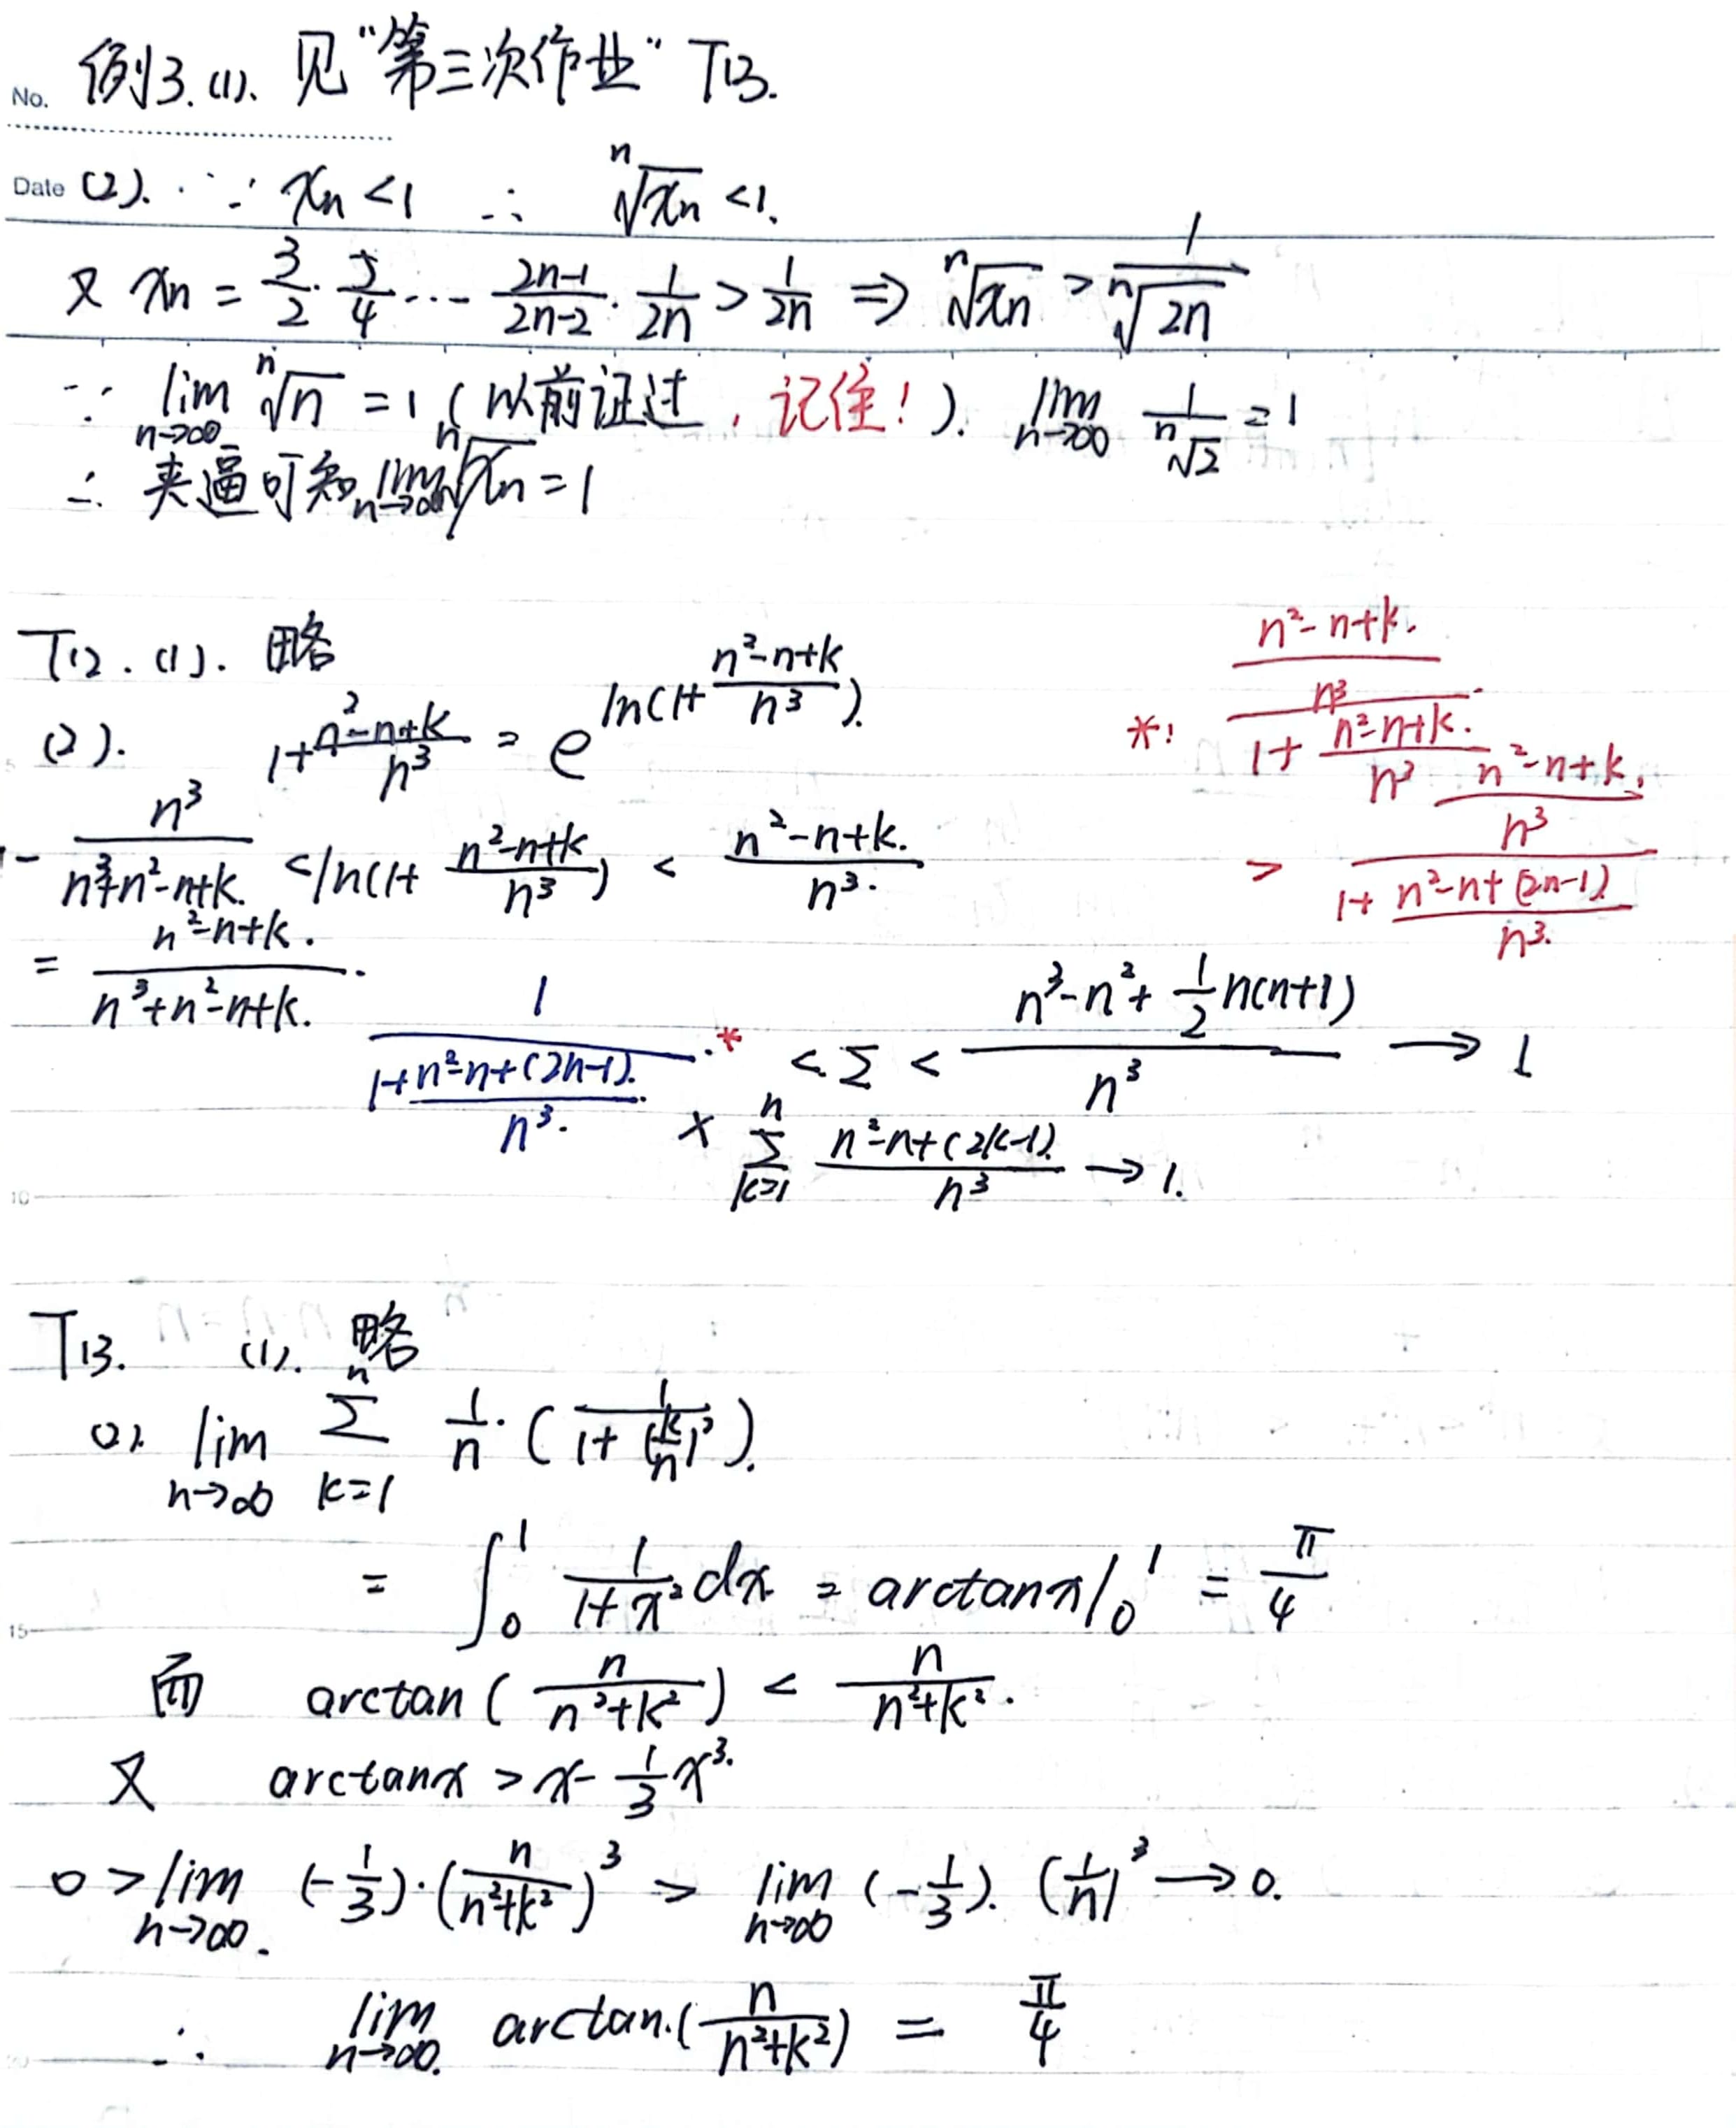 No. 例3.(1). 见“第三次作业” T13.
Date (2). ∵ xₙ < 1 ∴ ⁿ√xₙ < 1.
又 xₙ = 3/2 · 5/4 ··· (2n-1)/(2n-2) · 1/2n > 1/2n ⇒ ⁿ√xₙ > 1/ⁿ√2n
∵ lim n→∞ ⁿ√n = 1 (以前证过, 记住!). lim n→∞ 1/ⁿ√2 = 1
∴ 夹逼可知 lim n→∞ ⁿ√xₙ = 1
T12. (1). 略
(2). 1+(n²-n+k)/n³ = e^ln(1+(n²-n+k)/n³).
1 - n³/(n³+n²-n+k) < ln(1+(n²-n+k)/n³) < (n²-n+k)/n³.
= (n²-n+k)/(n³+n²-n+k).
*: ((n²-n+k)/n³)/(1+(n²-n+k)/n³)
> ((n²-n+k)/n³)/(1+(n²-n+(2n-1))/n³)
1/(1+(n²-n+(2n-1))/n³) ·* < Σ < (n³-n²+½n(n+1))/n³ → 1
× Σ k=1 n (n²-n+(2k-1))/n³ → 1.
T13. (1). 略
(2). lim n→∞ Σ k=1 n 1/n · (1/(1+(k/n)²)).
= ∫₀¹ 1/(1+x²) dx = arctanx|₀¹ = π/4
而 arctan(n/(n²+k²)) < n/(n²+k²).
又 arctanx > x - 1/3 x³.
0 > lim n→∞. (-1/3)·(n/(n²+k²))³ > lim n→∞ (-1/3). (1/n)³ → 0.
∴ lim n→∞. arctan.(n/(n²+k²)) = π/4
5
10
15
20